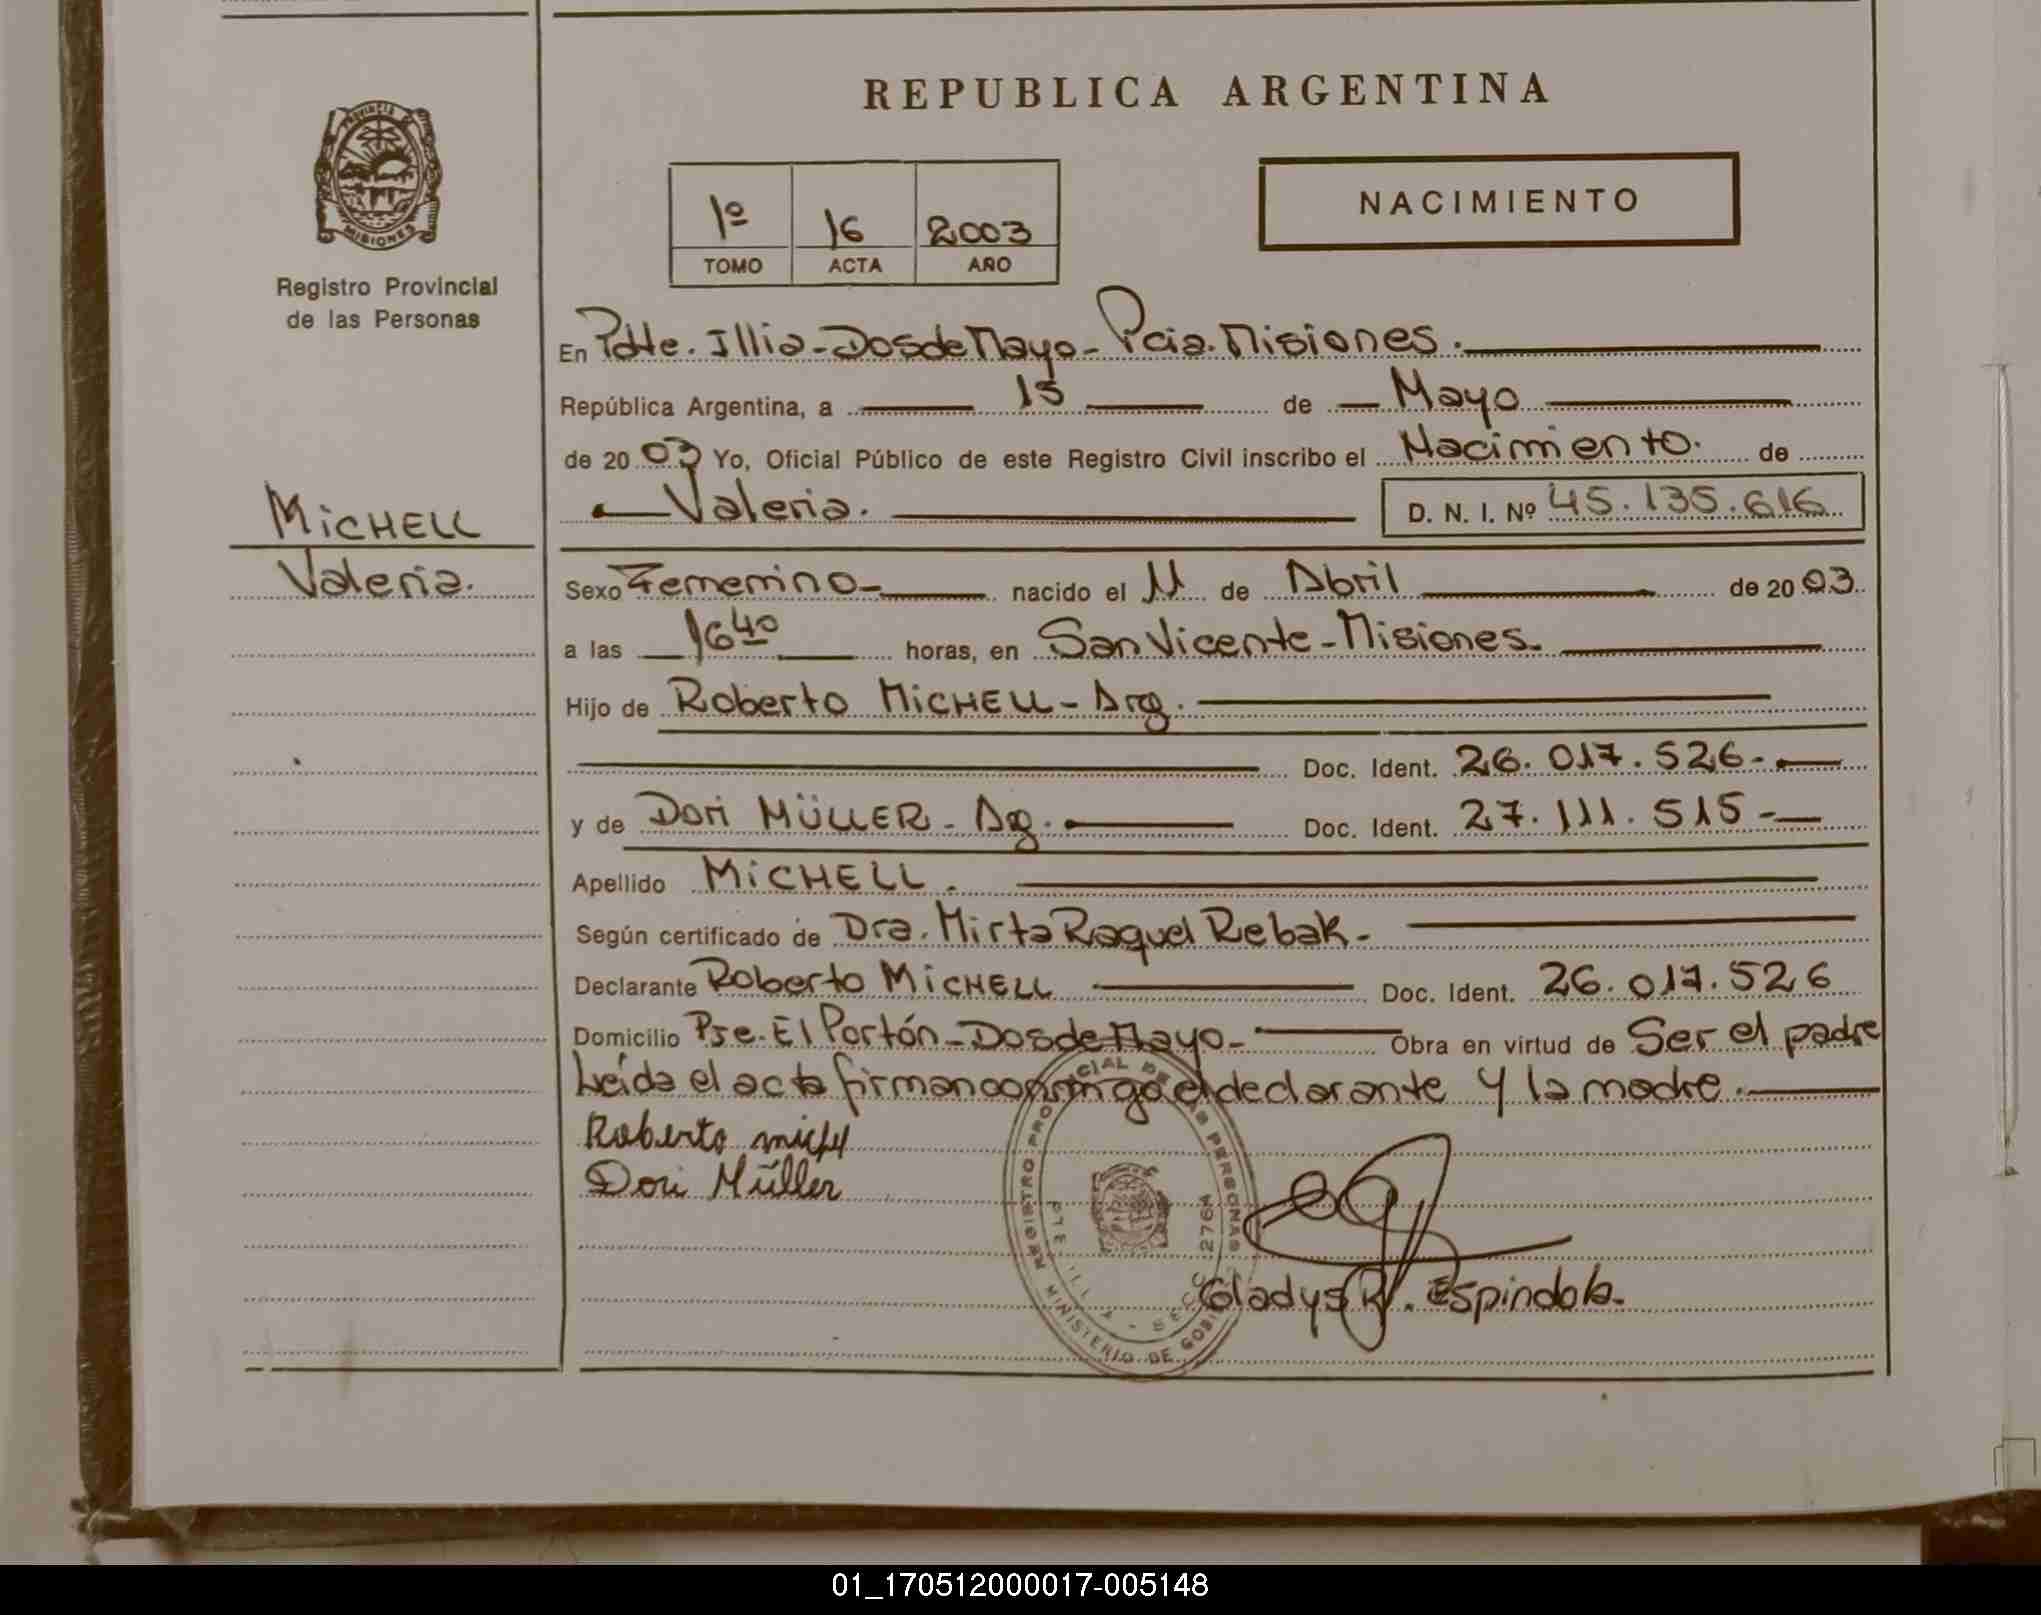 REPUBLICA ARGENTINA
PROVINCIA DE
MISIONES
Registro Provincial
de las Personas
1º 16 2003
TOMO ACTA AÑO
NACIMIENTO
En Pdte. Illia - Dos de Mayo - Pcia. Misiones.
República Argentina, a 15 de Mayo
de 20 03 Yo, Oficial Público de este Registro Civil inscribo el Nacimiento. de
Valeria. D. N. I. Nº 45.135.616
MiCHELL
Valeria.
Sexo Femenino - nacido el 11 de Abril de 20 03.
a las 16 40 horas, en San Vicente - Misiones.
Hijo de Roberto MiCHELL - Arg.
Doc. Ident. 26.017.526 -
y de Dori MÜLLER - Arg. Doc. Ident. 27.111.515 -
Apellido MiCHELL.
Según certificado de Dra. Mirta Raquel Rebak -
Declarante Roberto MiCHELL Doc. Ident. 26.017.526
Domicilio Pje. El Portón - Dos de Mayo - Obra en virtud de Ser el padre
Leída el acta firman conmigo el declarante y la madre.
Roberto
Dori Müller
REGISTRO PROVINCIAL DE LAS PERSONAS
MINISTERIO DE
2764
Gladys R. Espindola.
01_170512000017-005148